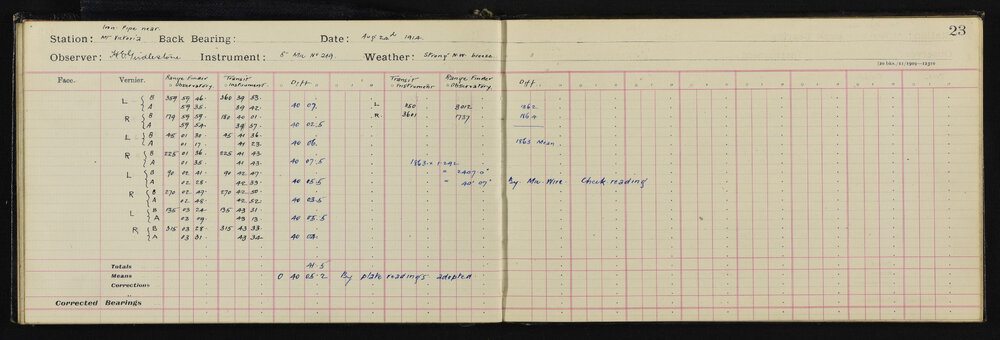 23
Iron Pipe near
Station: Mt Victoria Back Bearing: Date: Aug 22nd 1914
Observer: Girdlestone Instrument: 5" Mic No 219 Weather: Strong N.W. breeze
[20 bks./11/1909—12370
Face. Vernier. Range Finder Observatory Transit Instrument Diff Transit Instrument Range Finder Observatory Diff
L B 359 59 46 360 39 53 L 150 2012 1862
A 59 35 39 42 40 07
R B 179 59 59 180 40 01 R 3601 1737 1864
A 59 54 39 57 40 02.5
L B 45 01 30 45 41 36
A 01 17 41 23 40 06 1863 Mean
R B 225 01 36 225 41 43
A 01 35 41 43 40 07.5 1863 x 1.292
L B 90 02 41 90 42 47 = 2407.0"
A 02 28 42 33 40 05.5 = 40' 07" By Mic. Wire Check reading
R B 270 02 47 270 42 50
A 02 48 42 52 40 03.5
L B 135 03 24 135 43 31
A 03 09 43 13 40 05.5
R B 315 03 28 315 43 33
A 03 31 43 34 40 04
Totals 41.5
Means 0 40 05.2 By plate readings adopted
Corrections
Corrected Bearings